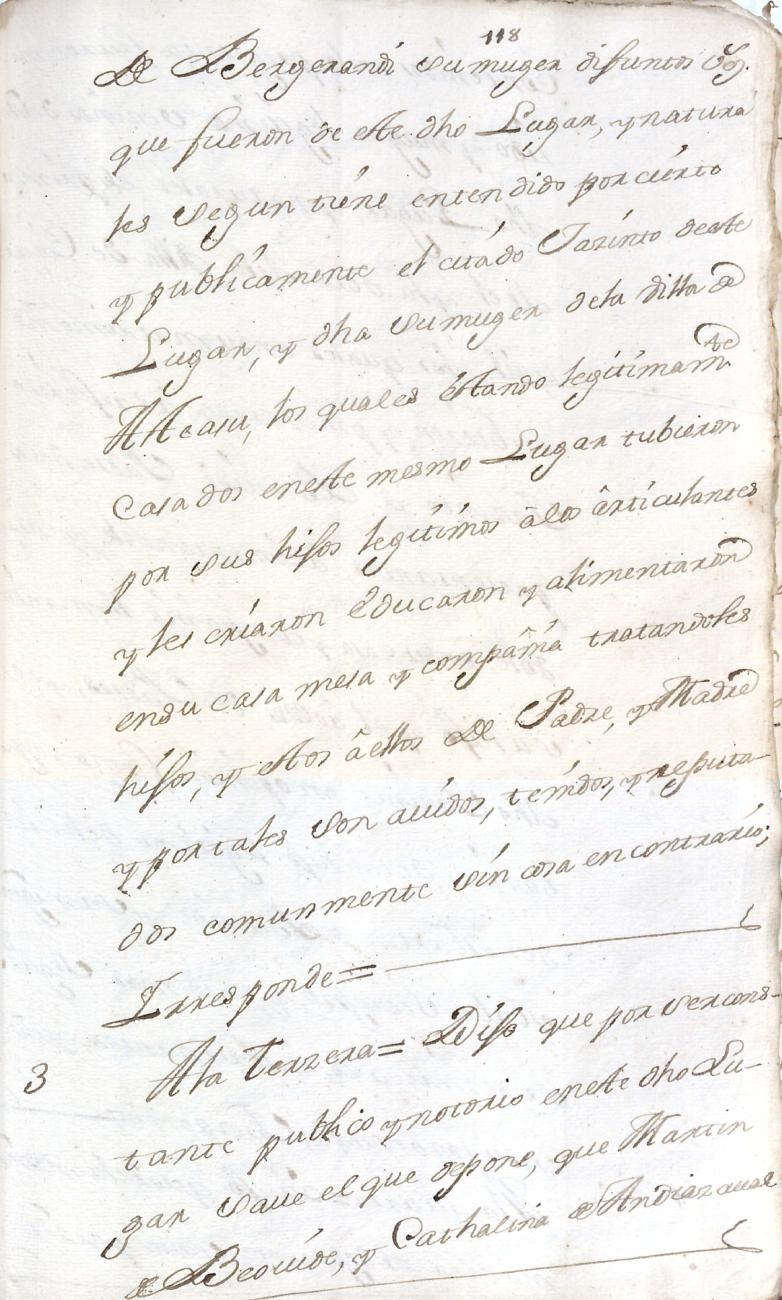 118
de Bergerandi su muger difuntos Vs.
que fueron de este dho Lugar, y natura
les segun tiene entendido por cierto
y publicamente el citado Jazinto deste
Lugar, y dha su muger dela villa de
Alcasu, los quales éstando legitimamte
Casados eneste mesmo Lugar tubieron
por sus hijos legitimos âlos ârticulantes
y les criaron êducaron y alimentaron
ensu casa mesa y compañia tratandoles
hijos, y êstos âellos de Padre, y Madre
y por tales son auidos, tenidos, y reputa-
dos comunmente sin cosa en contrario;
Yrresponde=
3 Ala Terzera= Dijo que por ser cons-
tante publico y notorio eneste dho Lu-
gar saue el que depone, que Martin
de Beovide, y Cathalina de Andiazaual